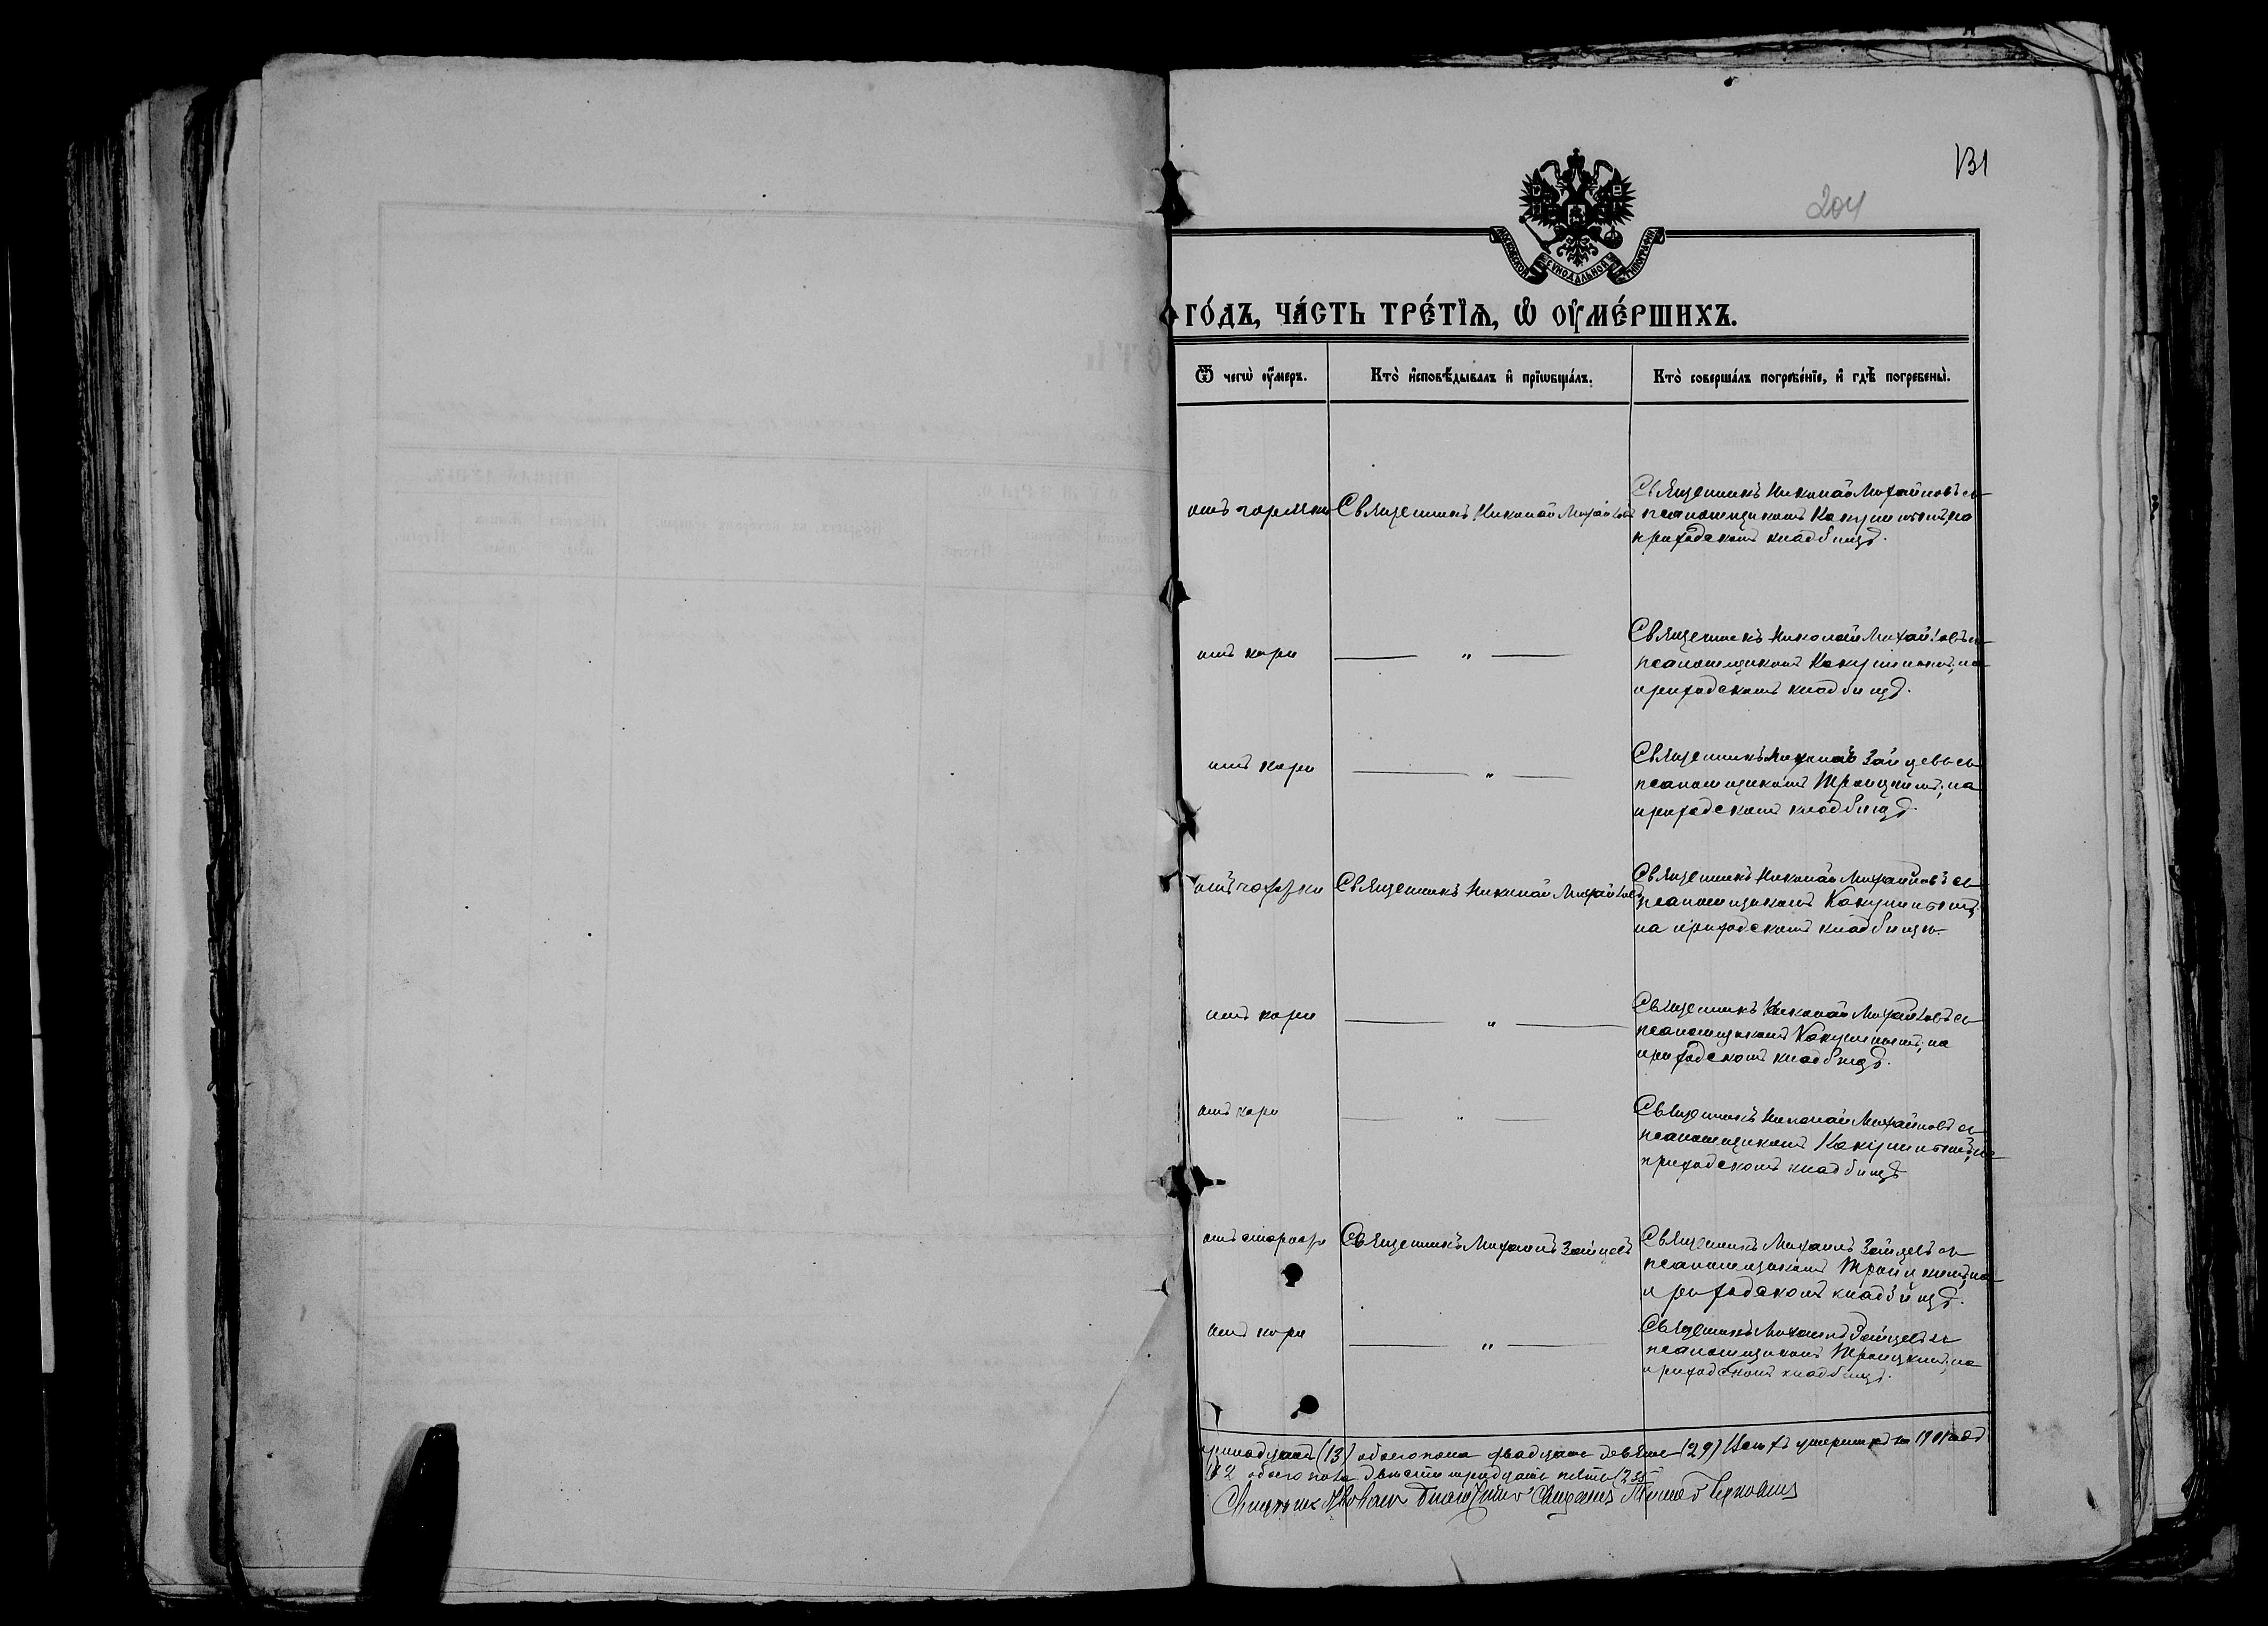 131
204
МОСКОВСКОЙ СѴНОДАЛЬНОЙ ТИПОГРАФІИ
ГО́ДЪ, ЧА́СТЬ ТРЕ́ТЇѦ, Ѡ҆ ОУ҆МЕ́РШИХЪ.
Ѿ чегѡ̀ оу҆́меръ.
Кто̀ и҆сповѣ́дывалъ и҆ прїѡбща́лъ.
Кто̀ соверша́лъ погребе́нїе, и҆ гдѣ̀ погребены̀.
отъ горячки
Священникъ Николай Михайловъ
Священникъ Николай Михайловъ съ
псаломщикомъ на
приходскомъ кладбищѣ.
отъ кори
— " —
Священникъ Николай Михайловъ съ
псаломщикомъ на
приходскомъ кладбищѣ.
отъ кори
— " —
Священникъ Михаилъ Зайцевъ съ
псаломщикомъ Троицкимъ, на
приходскомъ кладбищѣ.
отъ чахотки
Священникъ Николай Михайловъ
Священникъ Николай Михайловъ съ
псаломщикомъ
на приходскомъ кладбищѣ.
отъ кори
— " —
Священникъ Николай Михайловъ съ
псаломщикомъ на
приходскомъ кладбищѣ.
отъ кори
— " —
Священникъ Николай Михайловъ съ
псаломщикомъ на
приходскомъ кладбищѣ
отъ старости
Священникъ Михаилъ Зайцевъ
Священникъ Михаилъ Зайцевъ съ
псаломщикомъ Троицкимъ, на
приходскомъ кладбищѣ.
отъ кори
— " —
Священникъ Михаилъ Зайцевъ съ
псаломщикомъ Троицкимъ, на
приходскомъ кладбищѣ.
тринадцать (13) обоего пола двадцать девять (29) Всѣхъ умершихъ за годъ
обоего пола двѣсти тридцать пять (235)
Священник